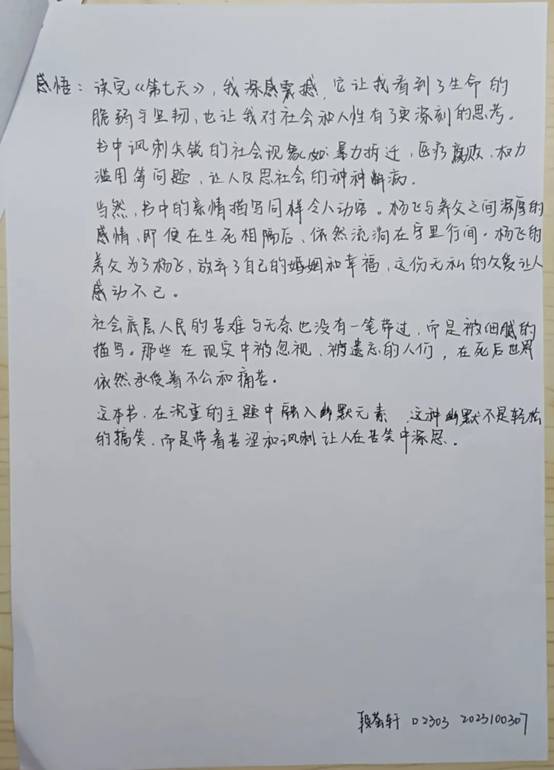 感悟：读完《第七天》，我深感震撼，它让我看到了生命的
脆弱与坚韧，也让我对社会和人性有了更深刻的思考。
书中讽刺尖锐的社会现象如暴力拆迁、医疗腐败、权力
滥用等问题，让人反思社会的种种弊病。
当然，书中的亲情描写同样令人动容。杨飞与养父之间深厚的
感情，即使在生死相隔后，依然流淌在字里行间。杨飞的
养父为了杨飞，放弃了自己的婚姻和幸福，这份无私的父爱让人
感动不已。
社会底层人民的苦难与无奈也没有一笔带过，而是被细腻的
描写。那些在现实中被忽视、被遗忘的人们，在死后世界
依然承受着不公和痛苦。
这本书，在沉重的主题中融入幽默元素，这种幽默不是轻松
的搞笑，而是带着苦涩和讽刺让人在苦笑中深思。
段 轩 02303 2023100307